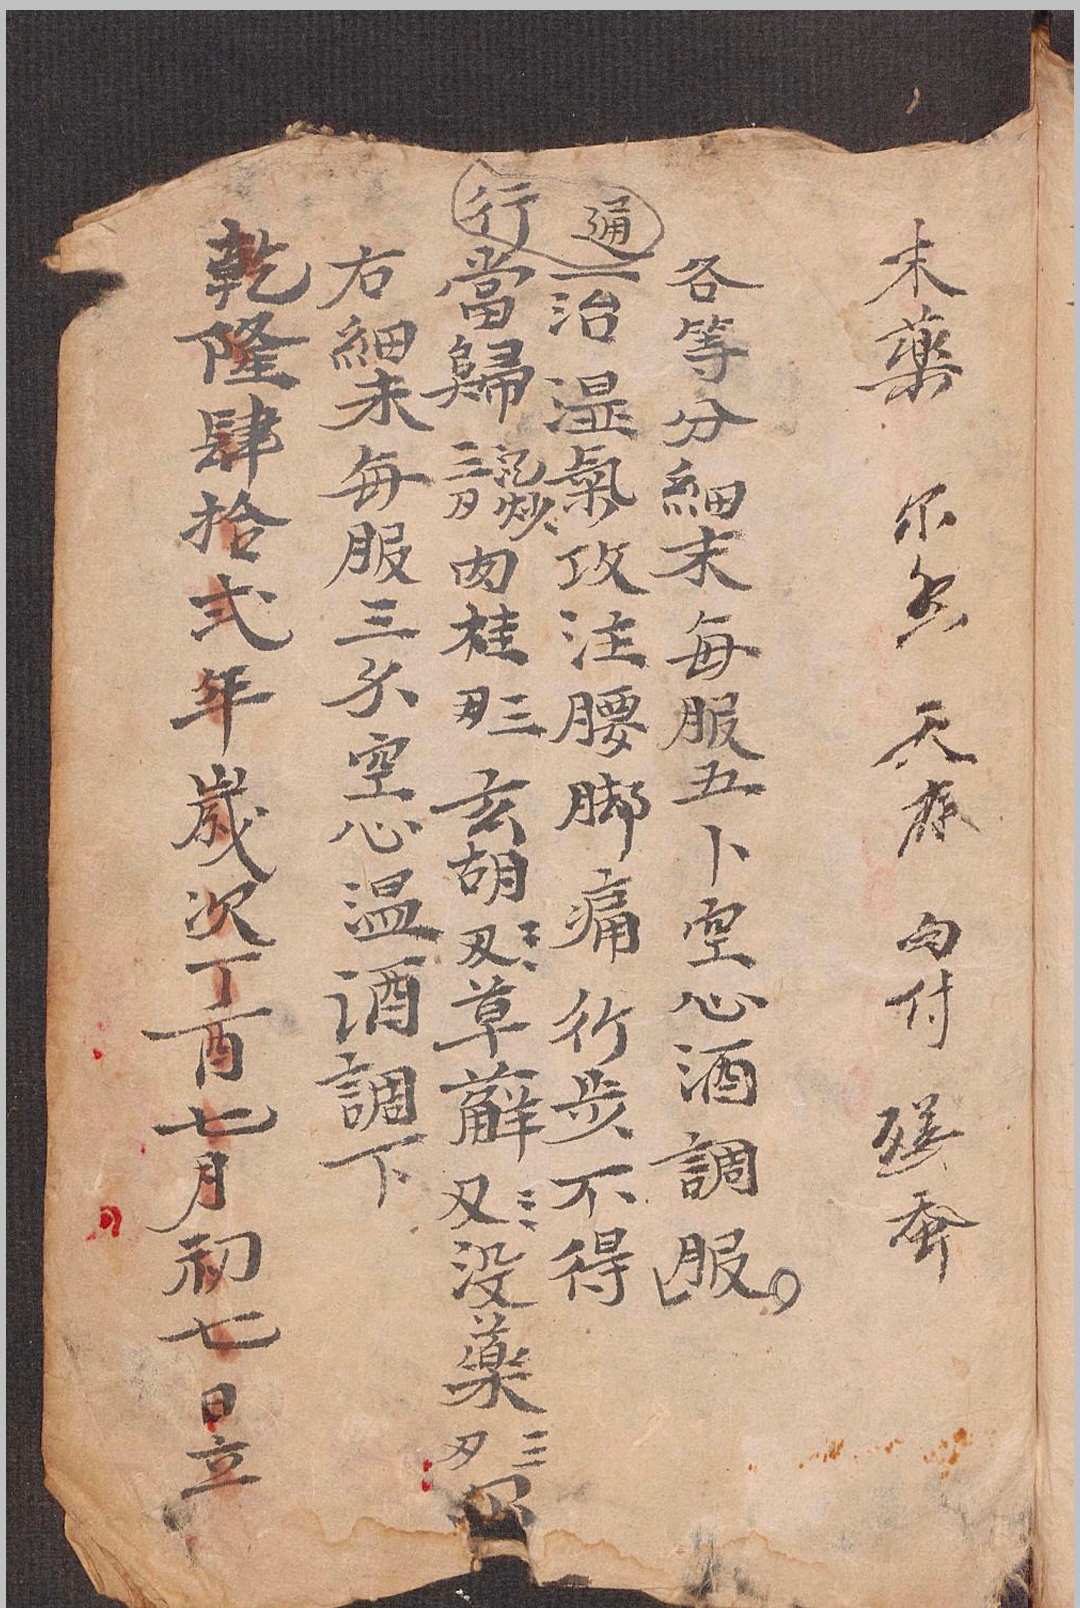 末藥 尔香 天麻 白付 殭蚕
各等分細末每服五卜空心酒調服
通
行
一治濕氣攻注腰脚痛行步不得
當歸三刄酒炒肉桂三刄玄胡三刄草薢三刄没藥三刄
右細末每服三分空心温酒調下
乾隆肆拾弍年歲次丁酉七月初七日立